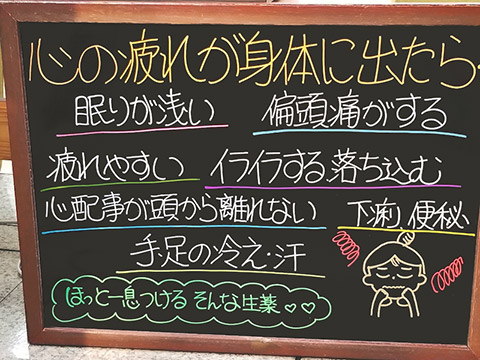 心の疲れが身体に出たら・
眠りが浅い 偏頭痛がする
疲れやすい イライラする 落ち込む
心配事が頭から離れない 下痢、便秘
手足の冷え・汗
ほっと一息つける そんな生薬♡♡